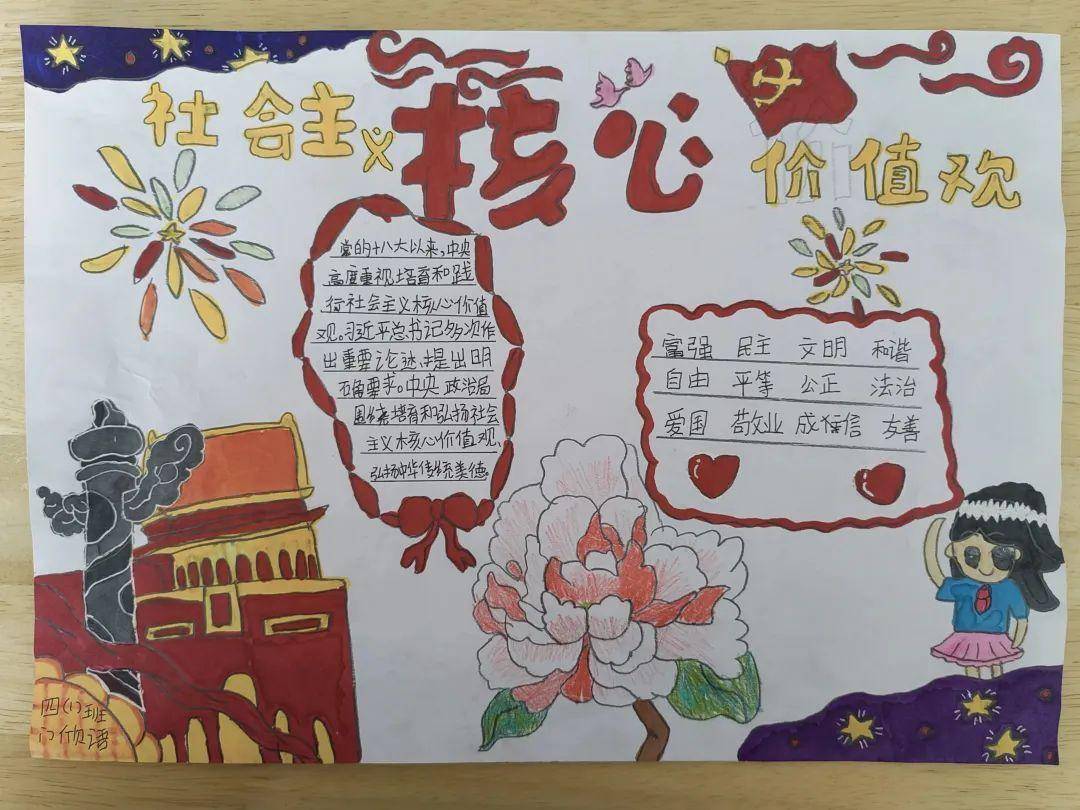 社会主义核心价值观
党的十八大以来,中央
高度重视培育和践
行社会主义核心价值
观。习近平总书记多次作
出重要论述,提出明
确要求。中央 政治局
围绕培育和弘扬社会
主义核心价值观、
弘扬中华传统美德。
富强 民主 文明 和谐
自由 平等 公正 法治
爱国 敬业 成信 友善
四(1)班
门欣语